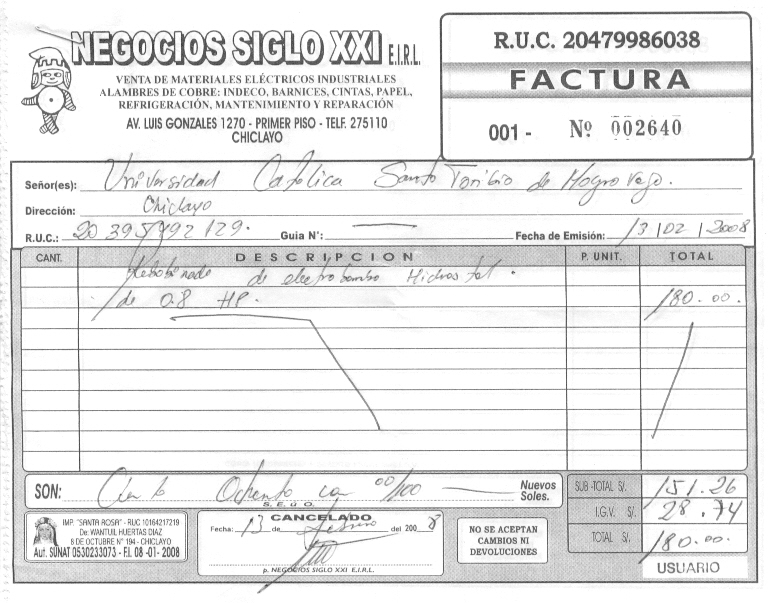 NEGOCIOS SIGLO XXI E.I.R.L.
VENTA DE MATERIALES ELÉCTRICOS INDUSTRIALES
ALAMBRES DE COBRE: INDECO, BARNICES, CINTAS, PAPEL,
REFRIGERACIÓN, MANTENIMIENTO Y REPARACIÓN
AV. LUIS GONZALES 1270 - PRIMER PISO - TELF. 275110
CHICLAYO
R.U.C. 20479986038
FACTURA
001 - Nº 002640
Señor(es): Universidad Catolica Santo Toribio de Mogrovejo.
Dirección: Chiclayo
R.U.C.: 20395492129. Guia Nº: Fecha de Emisión: 13 | 02 | 2008
CANT. DESCRIPCION P. UNIT. TOTAL
Rebobinado de electrobomba Hidrostal.
de 0.8 HP. 180.00.
SON: Ciento Ochenta con 00/100 Nuevos Soles.
S. E. ú O.
SUB-TOTAL S/. 151.26
I.G.V. S/. 28.74
TOTAL S/. 180.00.
USUARIO
IMP. "SANTA ROSA" - RUC 10164217219
De: WANTUIL HUERTAS DIAZ
8 DE OCTUBRE Nº 194 - CHICLAYO
Aut. SUNAT 0530233073 - F.I. 08 -01- 2008
CANCELADO
Fecha: 13 de Febrero del 2008
p. NEGOCIOS SIGLO XXI E.I.R.L.
NO SE ACEPTAN
CAMBIOS NI
DEVOLUCIONES